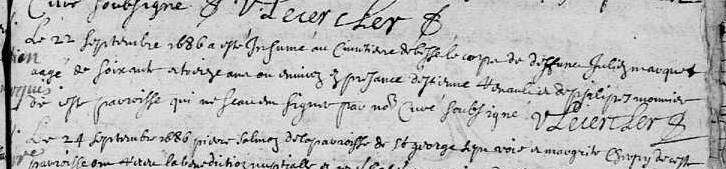 Curé soubsigné V Lecercler
Le 22 septembre 1686 a esté Inhumé au Cimitiere le corps de deffunct Julien marquet
aagé de soixante et treize ans ou environ en presance d'estienne de philipe monnier
de cest parroisse qui ne scavem signer par nos Curé soubsigné V Lecercler
Le 24 septembre 1686 pierre Salmon de la parroisse de St george et margrite de ceste
parroisse ont la benediction nuptialle